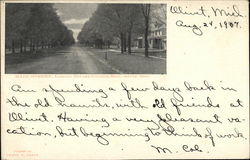 Olivet, Mich
Aug. 24, 1907.
MAIN STREET,
Am spending a few days back in
the old haunts, with old friends at
Olivet. Having a very pleasant va-
cation, but beginning to think of work
M. Col.